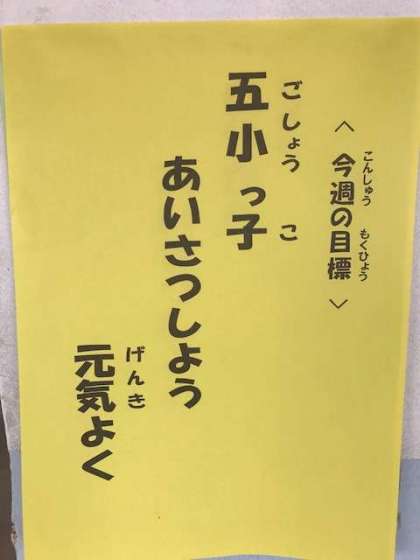 〈今週の目標〉
こんしゅう もくひょう
五小っ子
ごしょう こ
あいさつしよう
元気よく
げんき